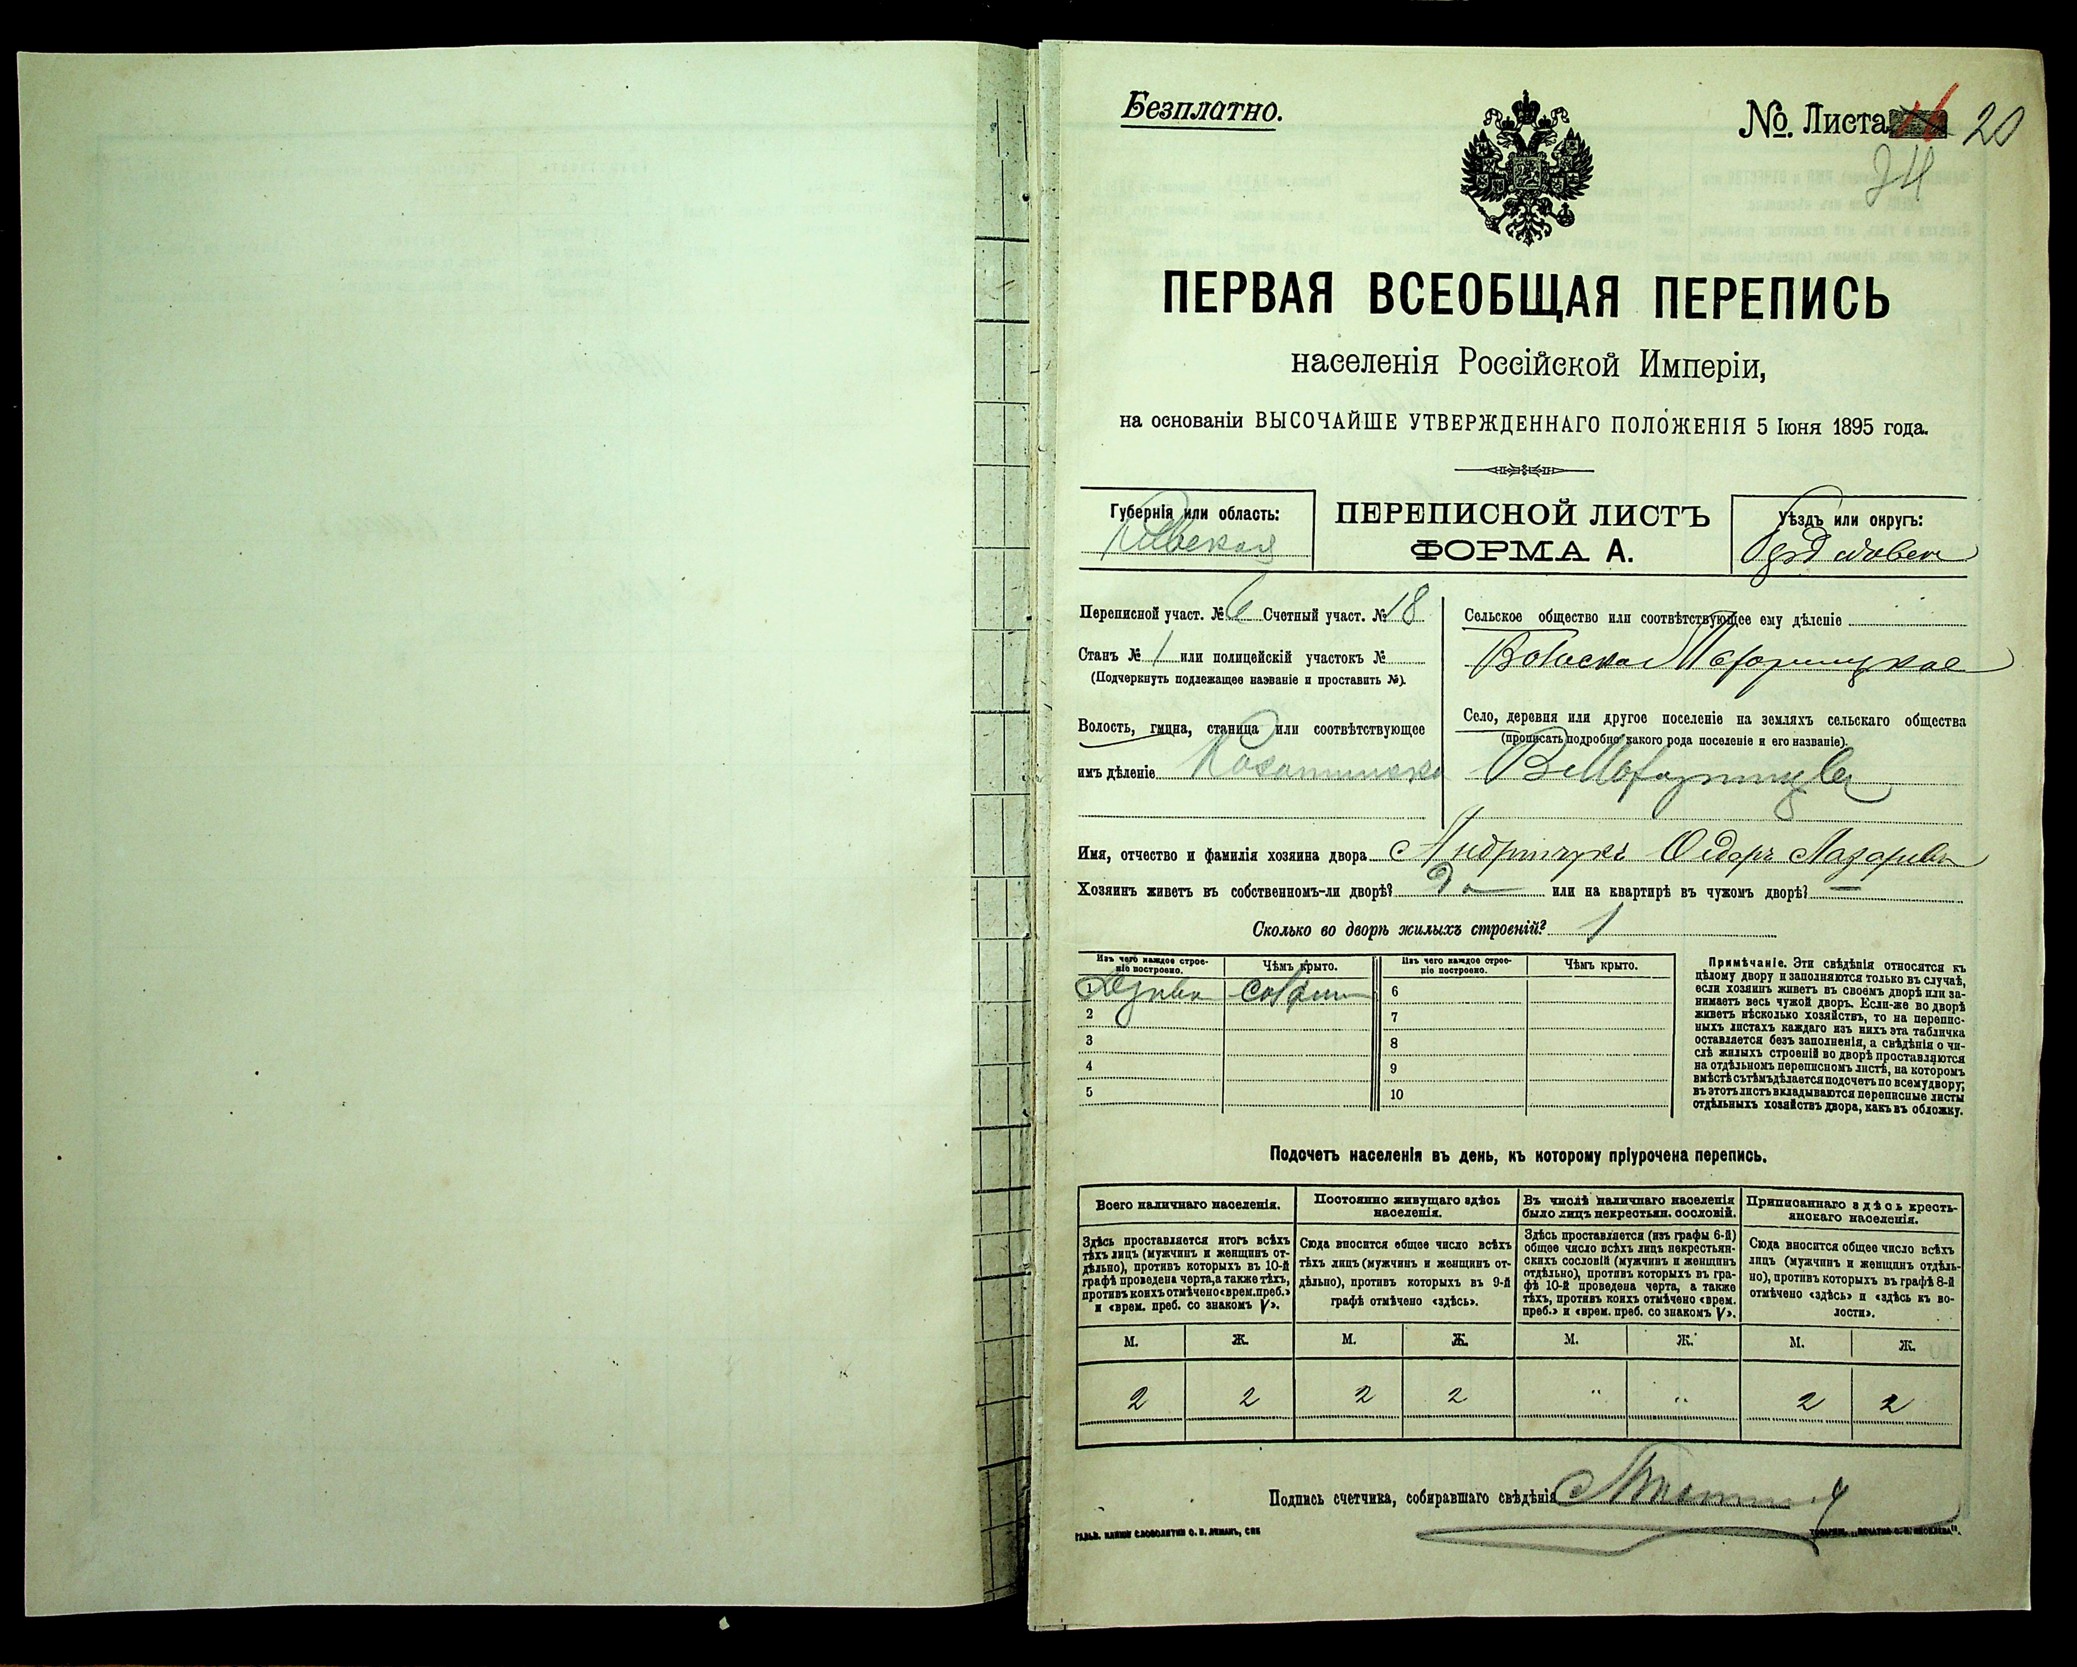 Безплатно.
№. Листа 20
24
ПЕРВАЯ ВСЕОБЩАЯ ПЕРЕПИСЬ
населенія Россійской Имперіи,
на основаніи ВЫСОЧАЙШЕ УТВЕРЖДЕННАГО ПОЛОЖЕНІЯ 5 Іюня 1895 года.
Губернія или область:
Кіевская
ПЕРЕПИСНОЙ ЛИСТЪ
ФОРМА А.
Уѣздъ или округъ:
Переписной участ. № 6 Счетный участ. № 18
Станъ № 1 или полицейскій участокъ №
(Подчеркнуть подлежащее названіе и проставить №).
Волость, гмина, станица или соотвѣтствующее
имъ дѣленіе
Сельское общество или соотвѣтствующее ему дѣленіе
Село, деревня или другое поселеніе на земляхъ сельскаго общества
(прописать подробно какого рода поселеніе и его названіе).
Имя, отчество и фамилія хозяина двора Андрійчукъ Федоръ Лазаревъ
Хозяинъ живетъ въ собственномъ-ли дворѣ? Да или на квартирѣ въ чужомъ дворѣ? —
Сколько во дворѣ жилыхъ строеній? 1
Изъ чего каждое строе-
ніе построено.
Чѣмъ крыто.
Изъ чего каждое строе-
ніе построено.
Чѣмъ крыто.
1 6
2 7
3 8
4 9
5 10
Примѣчаніе. Эти свѣдѣнія относятся къ
цѣлому двору и заполняются только въ случаѣ,
если хозяинъ живетъ въ своемъ дворѣ или за-
нимаетъ весь чужой дворъ. Если-же во дворѣ
живетъ нѣсколько хозяйствъ, то на перепис-
ныхъ листахъ каждаго изъ нихъ эта табличка
оставляется безъ заполненія, а свѣдѣнія о чи-
слѣ жилыхъ строеній во дворѣ проставляются
на отдѣльномъ переписномъ листѣ, на которомъ
вмѣстѣ съ тѣмъ дѣлается подсчетъ по всему двору;
въ этотъ листъ вкладываются переписные листы
отдѣльныхъ хозяйствъ двора, какъ въ обложку.
Подсчетъ населенія въ день, къ которому пріурочена перепись.
Всего наличнаго населенія.
Здѣсь проставляется итогъ всѣхъ
тѣхъ лицъ (мужчинъ и женщинъ от-
дѣльно), противъ которыхъ въ 10-й
графѣ проведена черта, а также тѣхъ,
противъ коихъ отмѣчено «врем. преб.»
и «врем. преб. со знакомъ V».
Постоянно живущаго здѣсь
населенія.
Сюда вносится общее число всѣхъ
тѣхъ лицъ (мужчинъ и женщинъ от-
дѣльно), противъ которыхъ въ 9-й
графѣ отмѣчено «здѣсь».
Въ числѣ наличнаго населенія
было лицъ некрестьян. сословій.
Здѣсь проставляется (изъ графы 6-й)
общее число всѣхъ лицъ некрестьян-
скихъ сословій (мужчинъ и женщинъ
отдѣльно), противъ которыхъ въ гра-
фѣ 10-й проведена черта, а также
тѣхъ, противъ коихъ отмѣчено «врем.
преб.» и «врем. преб. со знакомъ V».
Приписаннаго здѣсь кресть-
янскаго населенія.
Сюда вносится общее число всѣхъ
лицъ (мужчинъ и женщинъ отдѣль-
но), противъ которыхъ въ графѣ 8-й
отмѣчено «здѣсь» и «здѣсь къ во-
лости».
М. Ж. М. Ж. М. Ж. М. Ж.
2 2 2 2 " " 2 2
Подпись счетчика, собиравшаго свѣдѣнія